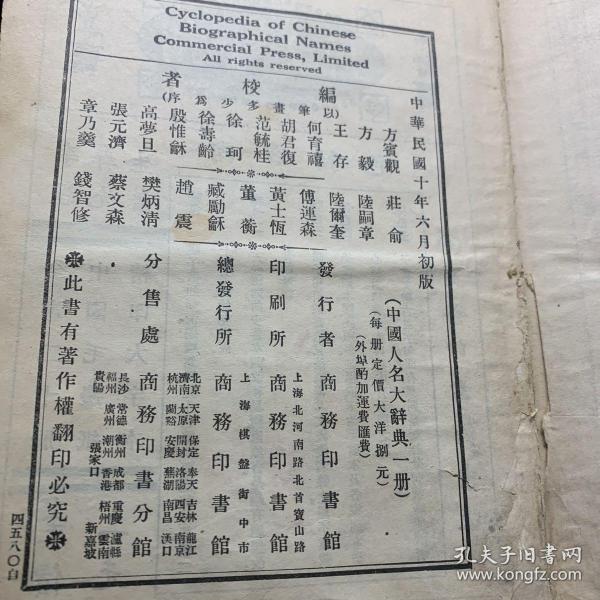 Cyclopedia of Chinese
Biographical Names
Commercial Press, Limited
All rights reserved
中華民國十年六月初版
編校者
(以筆畫多少為序)
方賓觀
方毅
王存
何育禧
胡君復
范毓桂
徐珂
徐壽齡
殷惟龢
高夢旦
張元濟
章乃羹
莊俞
陸嗣章
陸爾奎
傅運森
黃士恆
董蘅
臧勵龢
趙震
樊炳清
蔡文森
錢智修
(中國人名大辭典一册)
(每册定價大洋捌元)
(外埠酌加運費匯費)
發行者 商務印書館
印刷所 上海北河南路北首寶山路 商務印書館
總發行所 上海棋盤街中市 商務印書館
分售處 商務印書分館
北京 天津 保定 奉天 吉林 龍江
濟南 太原 開封 洛陽 西安 南京
杭州 蘭谿 安慶 蕪湖 南昌 漢口
長沙 常德 衡州 成都 重慶 瀘縣
福州 廣州 潮州 香港 梧州 雲南
貴陽 張家口 新嘉坡
此書有著作權翻印必究
四五八〇自
孔夫子旧书网
www.kongfz.com